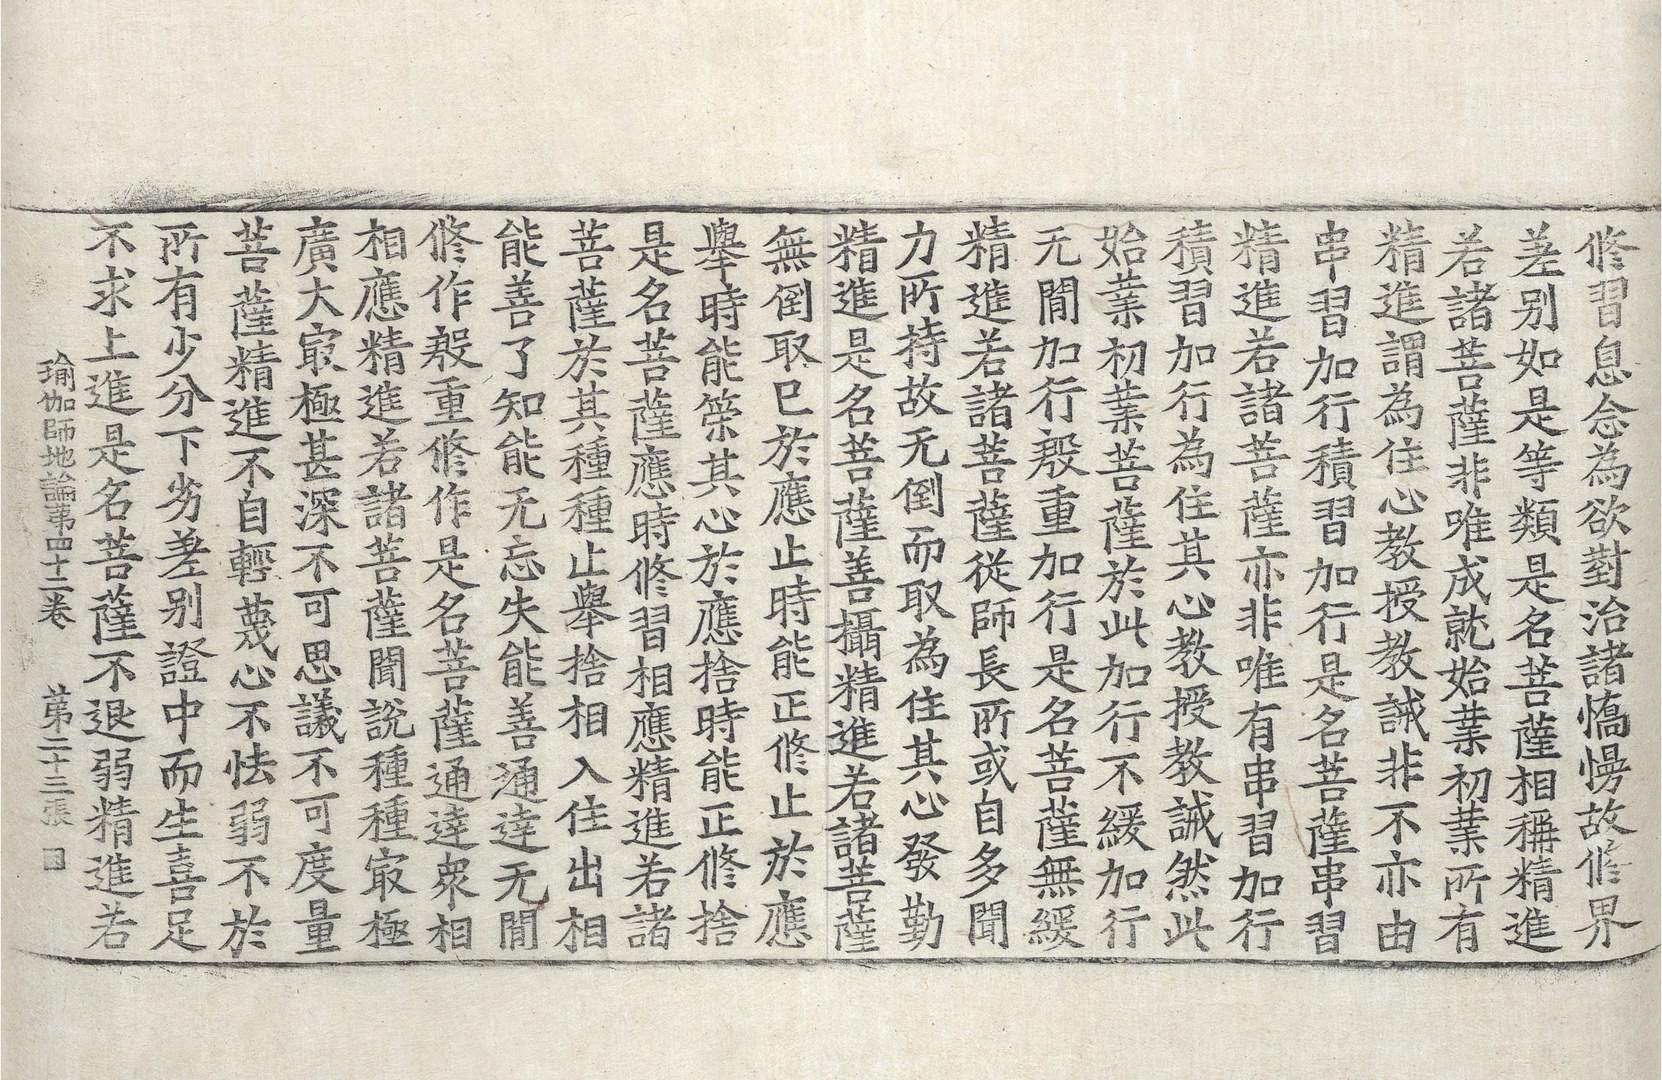 修習息念為欲對治諸憍慢故修界
差别如是等類是名菩薩相稱精進
若諸菩薩非唯成就始業初業所有
精進謂為住心教授教誡非不亦由
串習加行積習加行是名菩薩串習
精進若諸菩薩亦非唯有串習加行
積習加行為住其心教授教誡然此
始業初業菩薩於此加行不緩加行
无閒加行殷重加行是名菩薩無緩
精進若諸菩薩從師長所或自多聞
力所持故无倒而取為住其心發勤
精進是名菩薩善攝精進若諸菩薩
無倒取已於應止時能正修止於應
舉時能策其心於應捨時能正修捨
是名菩薩應時修習相應精進若諸
菩薩於其種種止舉捨相入住出相
能善了知能无忘失能善通達无閒
修作殷重修作是名菩薩通達衆相
相應精進若諸菩薩聞說種種㝡極
廣大㝡極甚深不可思議不可度量
菩薩精進不自輕蔑心不怯弱不於
所有少分下劣差别證中而生喜足
不求上進是名菩薩不退弱精進若
瑜伽師地論苐四十二卷 苐二十三張